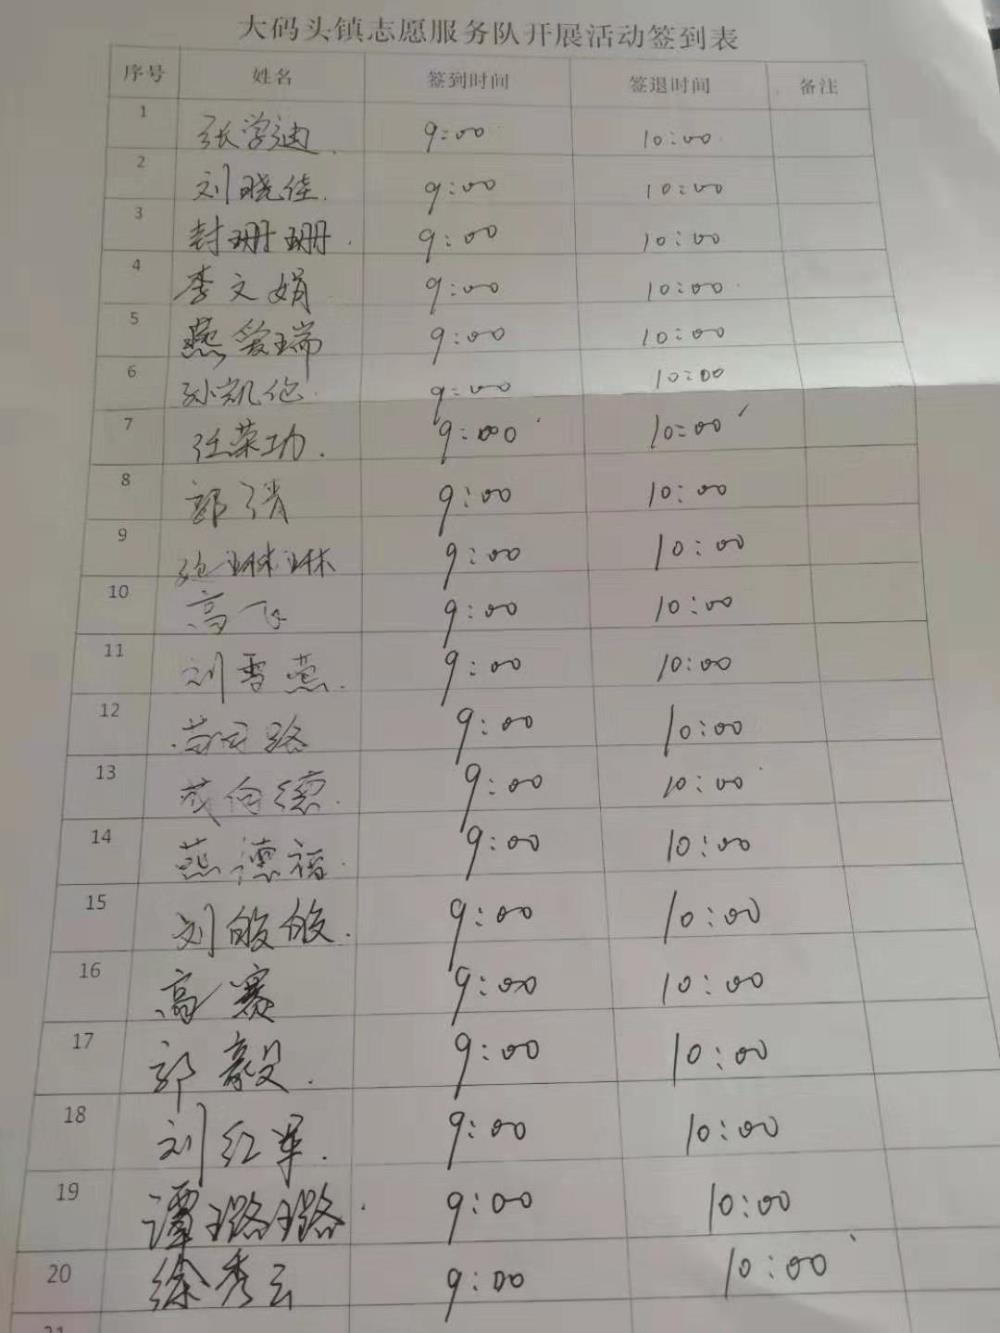 大码头镇志愿服务队开展活动签到表
序号 姓名 签到时间 签退时间 备注
1 张学迪. 9:00 10:00
2 刘晓佳. 9:00 10:00
3 封珊珊. 9:00 10:00
4 李文娟 9:00 10:00
5 燕爱瑞 9:00 10:00
6 孙凯伦 9:00 10:00
7 任荣功. 9:00 10:00
8 郭 9:00 10:00
9 琳琳 9:00 10:00
10 高飞 9:00 10:00
11 刘雪燕. 9:00 10:00
12 路 9:00 10:00
13 向德. 9:00 10:00
14 燕德福. 9:00 10:00
15 刘皎皎. 9:00 10:00
16 高赛 9:00 10:00
17 郭毅. 9:00 10:00
18 刘红军. 9:00 10:00
19 谭璐璐. 9:00 10:00
20 徐秀云 9:00 10:00
21